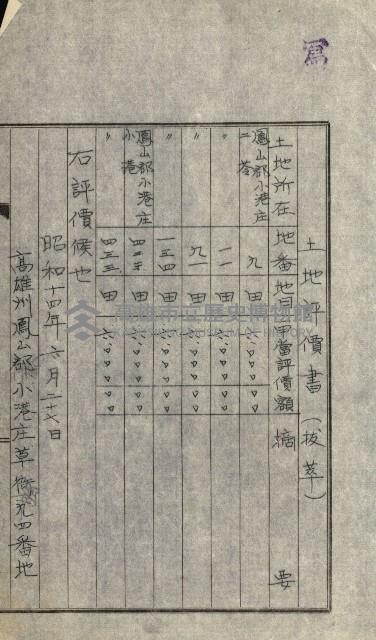 寫
土地評價書(抜萃)
土地所在 地番 地目 甲當評價額 摘要
鳳山郡小港庄二苓 九 田 六、〇〇〇〇〇
〃 一一 田 六、〇〇〇〇〇
〃 九一 田 六、〇〇〇〇〇
〃 一三四 田 六、〇〇〇〇〇
鳳山郡小港庄小港 田 六、〇〇〇〇〇
〃 四三三 田 六、〇〇〇〇〇
右評價候也
昭和十四年六月二十七日
高雄州鳳山郡小港庄草衙 四番地
高雄市立歷史博物館